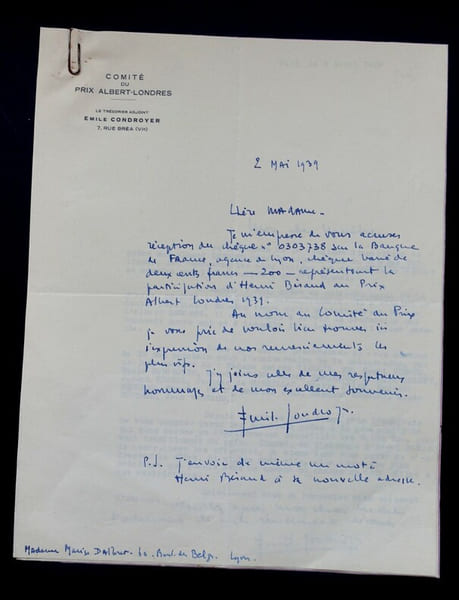 COMITÉ
DU
PRIX ALBERT-LONDRES
LE TRÉSORIER ADJOINT
EMILE CONDROYER
7, RUE BRÉA (VIe)
2 MAI 1939
Chère MADAME -
Je m'empresse de vous accuser
réception du chèque n° 0303738 sur la Banque
de France, agence de Lyon, chèque barré de
deux cents francs — 200 — représentant la
participation d'Henri Béraud au Prix
Albert Londres 1939.
Au nom du Comité du Prix
je vous prie de vouloir bien trouver ici
l'expression de nos remerciements les
plus vifs.
J'y joins celle de mes respectueux
hommages et de mon excellent souvenir.
Emile Condroyer
P.S. J'envoie de même un mot à
Henri Béraud à sa nouvelle adresse.
Madame Marise - Boul. des Belges. Lyon.